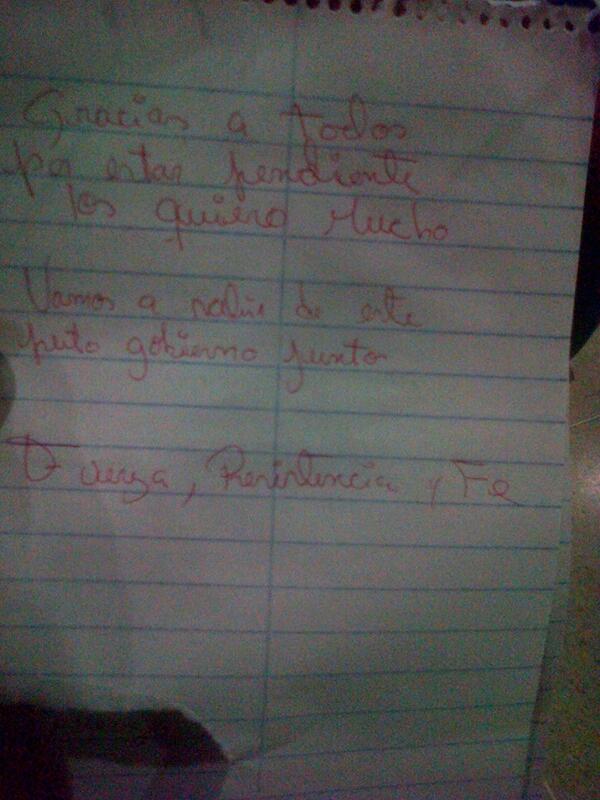 Gracias a todos
por estar pendiente
los quiero Mucho
Vamos a salir de este
puto gobierno juntos
Fuerza, Resistencia y Fe